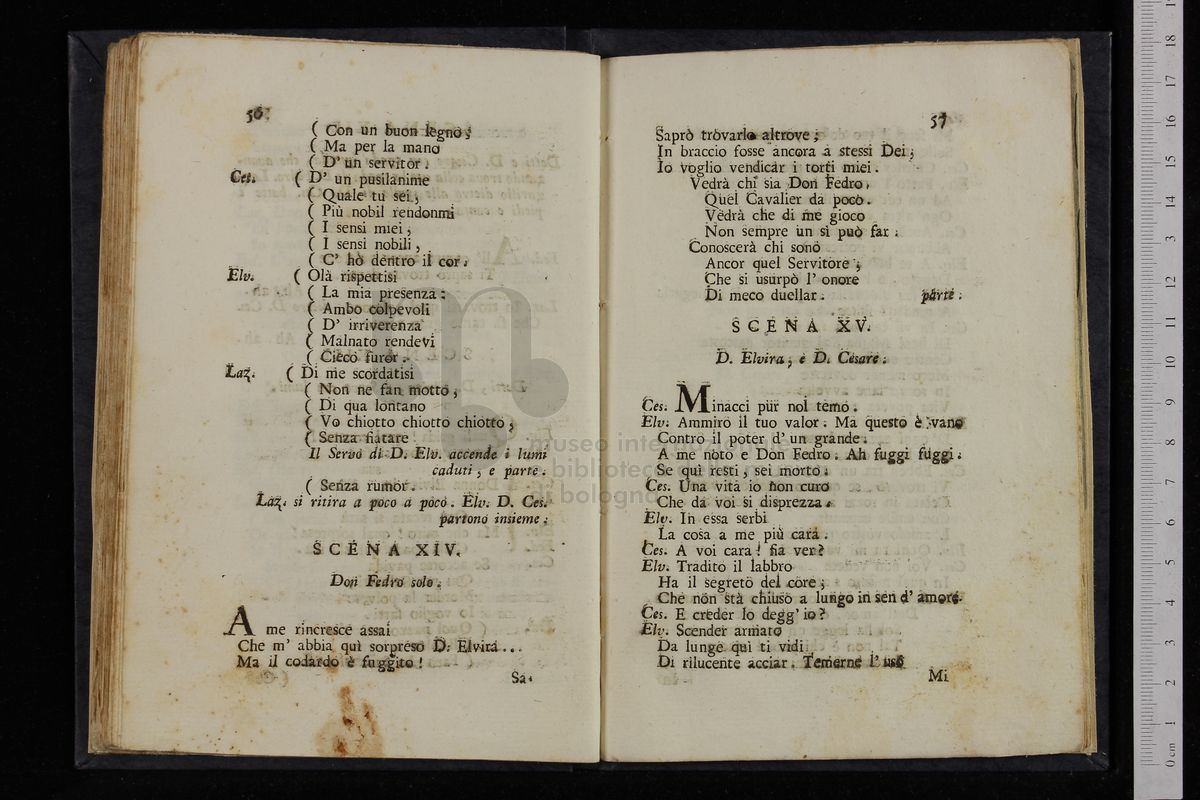 56
( Con un buon legno;
( Ma per la mano
( D' un servitor.
Ces. ( D' un pusilanime
( Quale tu sei,
( Più nobil rendonmi
( I sensi miei,
( I sensi nobili,
( C' hò dentro il cor.
Elv. ( Olà rispettisi
( La mia presenza:
( Ambo colpevoli
( D' irriverenza
( Malnato rendevi
( Cieco furor.
Laz. ( Di me scordatisi
( Non ne fan motto,
( Di qua lontano
( Vo chiotto chiotto chiotto,
( Senza fiatare
Il Servo di D. Elv. accende i lumi
caduti, e parte.
( Senza rumor.
Laz. si ritira a poco a poco. Elv. D. Ces.
partono insieme.
SCENA XIV.
Don Fedro solo.
A me rincresce assai
Che m' abbia quì sorpreso D. Elvira...
Ma il codardo è fuggito!
Sa-
57
Saprò trovarlo altrove;
In braccio fosse ancora a stessi Dei;
Io voglio vendicar i torti miei.
Vedrà chi sia Don Fedro,
Quel Cavalier da poco.
Vedrà che di me gioco
Non sempre un si può far.
Conoscerà chi sono
Ancor quel Servitore;
Che si usurpò l' onore
Di meco duellar. parte.
SCENA XV.
D. Elvira, e D. Cesare.
Ces. Minacci pur nol temo.
Elv. Ammiro il tuo valor. Ma questo è vano
Contro il poter d' un grande.
A me noto e Don Fedro. Ah fuggi fuggi.
Se quì resti, sei morto.
Ces. Una vita io non curo
Che da voi si disprezza.
Elv. In essa serbi
La cosa a me più cara.
Ces. A voi cara! fia ver?
Elv. Tradito il labbro
Ha il segreto del core;
Che non stà chiuso a lungo in sen d' amore.
Ces. E creder lo degg' io?
Elv. Scender armato
Da lunge quì ti vidi
Di rilucente acciar. Temerne l' uso
Mi
museo internazionale
biblioteca della musica
di bologna